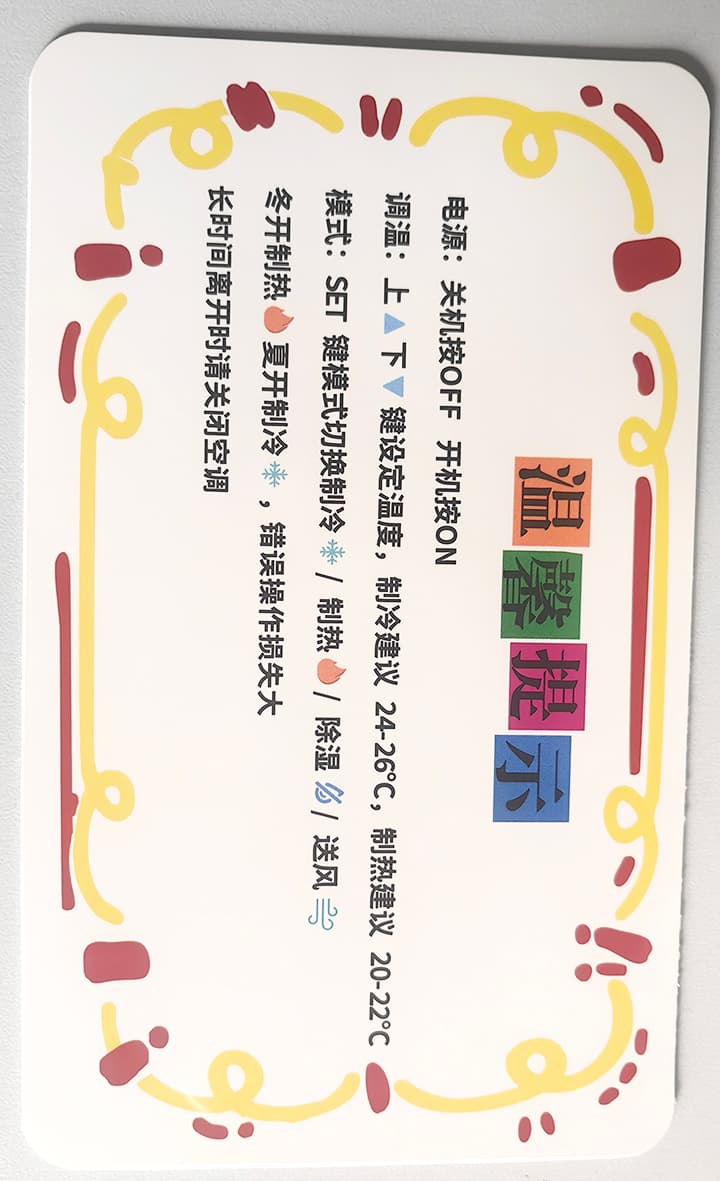 温馨提示
电源：关机按OFF 开机按ON
调温：上▲下▼键设定温度，制冷建议 24-26℃，制热建议 20-22℃
模式：SET 键模式切换制冷❄️/ 制热🔥/ 除湿💦/ 送风💨
冬开制热🔥夏开制冷❄️，错误操作损失大
长时间离开时请关闭空调